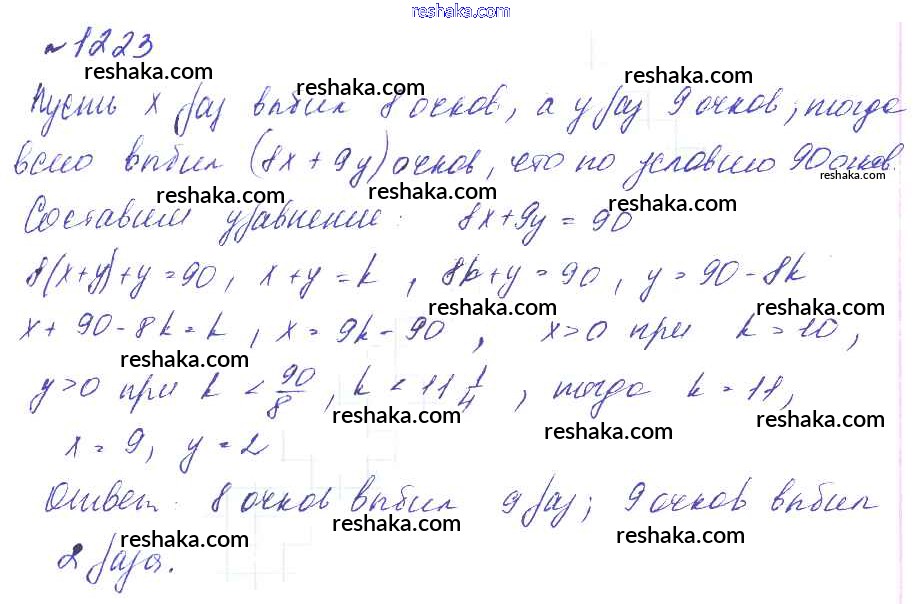 reshaka.com
№ 1223
reshaka.com reshaka.com reshaka.com
Пусть x раз выбил 8 очков, а y раз 9 очков, тогда
всего выбил (8x + 9y) очков, что по условию 90 очков.
reshaka.com reshaka.com reshaka.com
Составим уравнение: 8x + 9y = 90
8(x+y)+y=90, x+y=k, 8k+y=90, y=90-8k
reshaka.com reshaka.com reshaka.com
x + 90-8k=k, x = 9k-90, x>0 при k=10,
reshaka.com reshaka.com reshaka.com
y>0 при k < 90/8, k < 11 1/4, тогда k = 11,
reshaka.com reshaka.com reshaka.com
x = 9, y = 2
reshaka.com
Ответ: 8 очков выбил 9 раз; 9 очков выбил
reshaka.com reshaka.com
2 раза.
reshaka.com